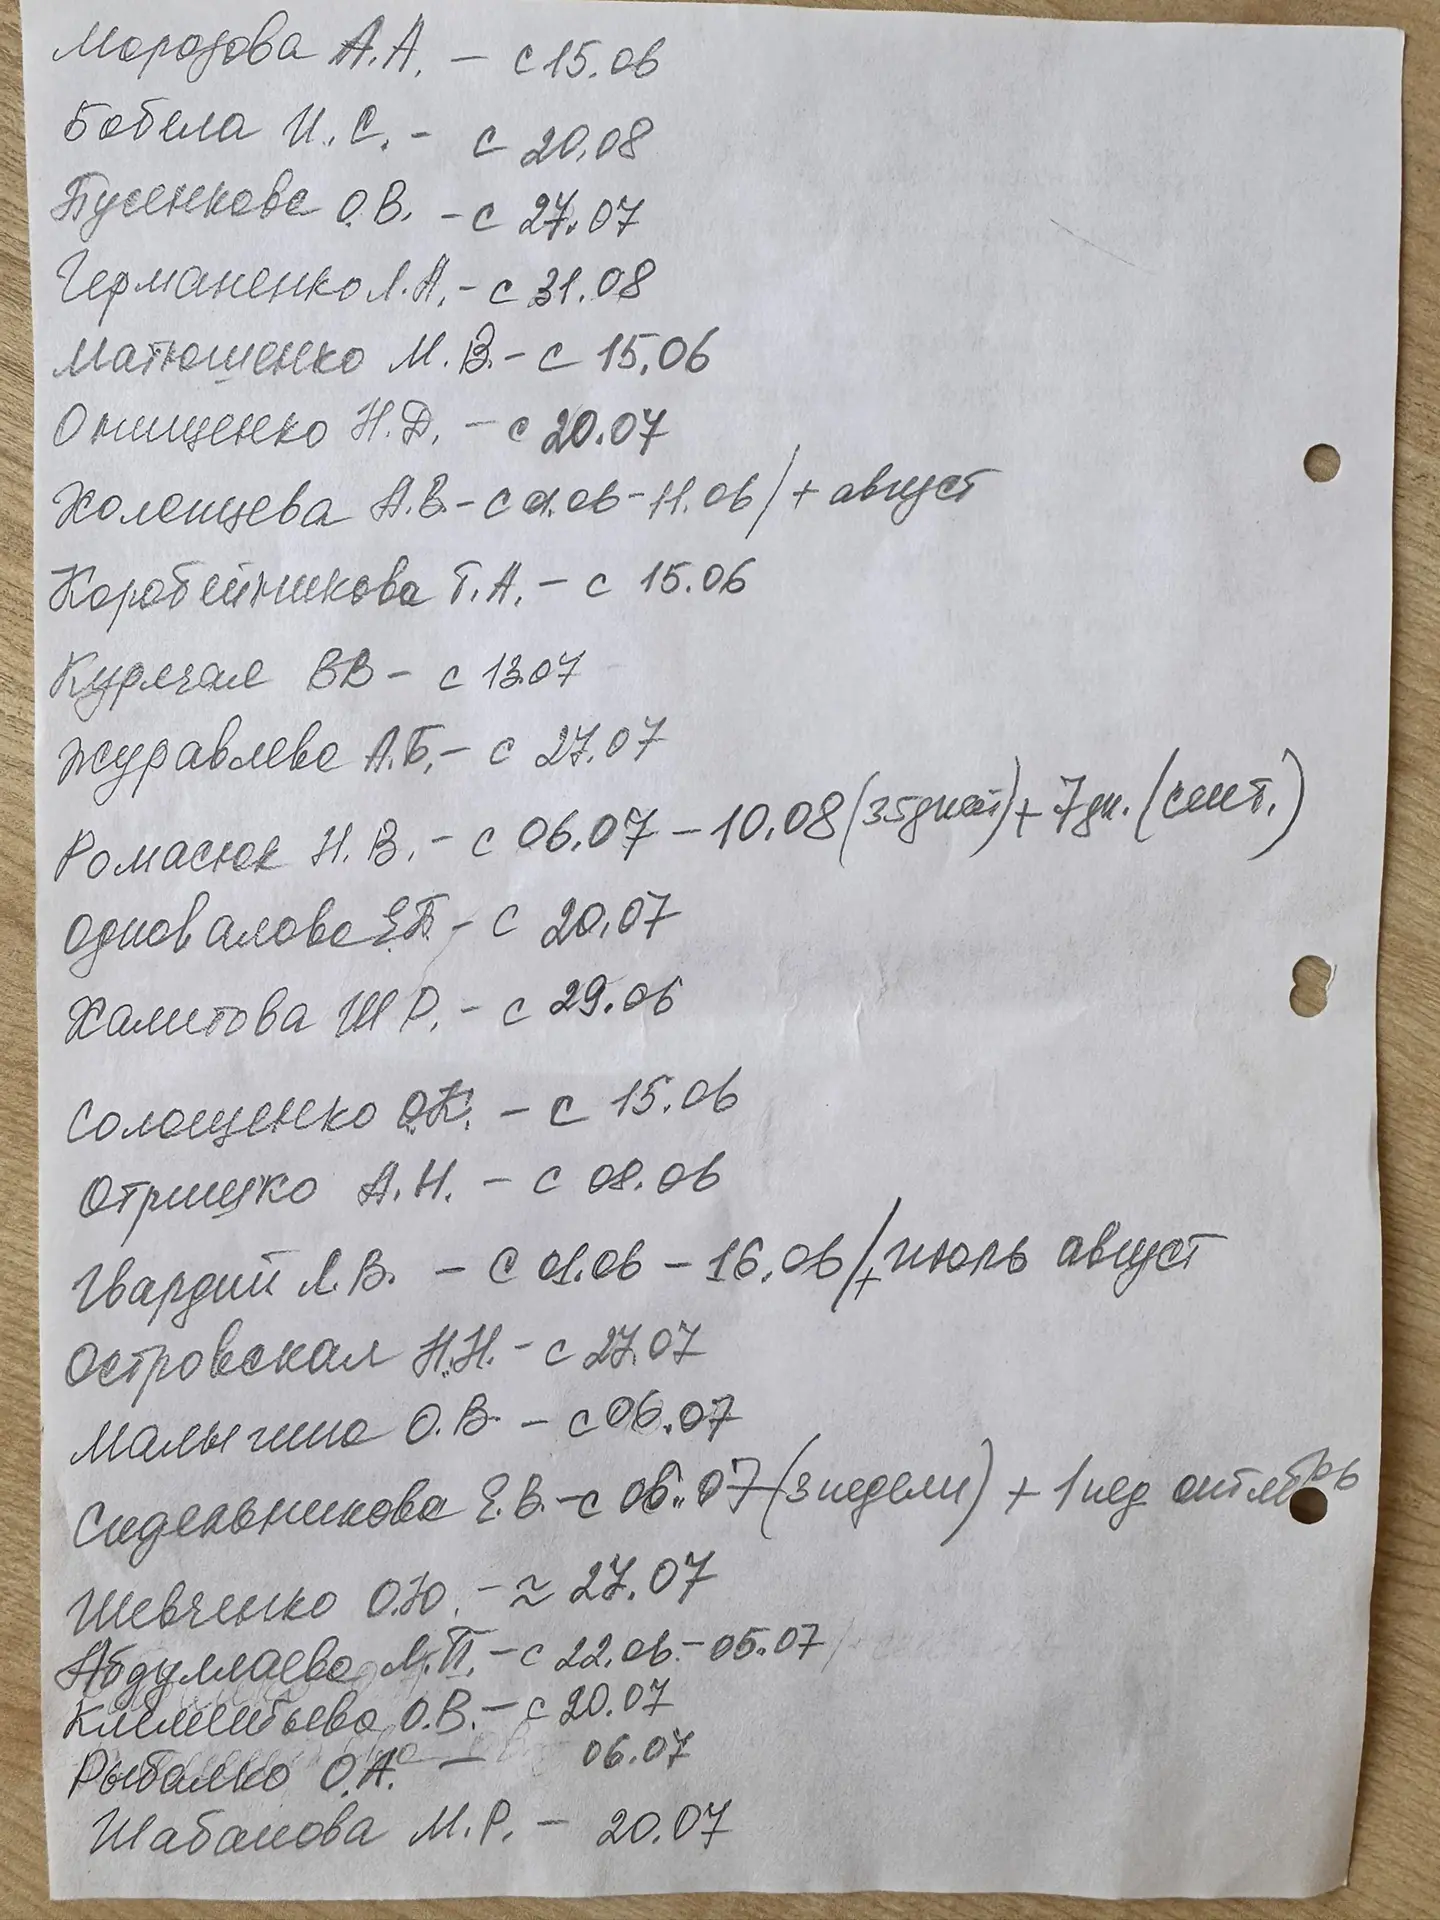 Морозова А.А. – с 15.06
Бабела И.С. – с 20.08
Пусенкова О.В. – с 27.07
Германенко Л.А. – с 31.08
Матюшенко М.В. – с 15.06
Онищенко Н.Д. – с 20.07
Холенцева А.В. – с 01.06 – 11.06 / + август
Коробейникова Т.А. – с 15.06
Курячая ВВ – с 13.07
Журавлева А.Б. – с 27.07
Ромасюк Н.В. – с 06.07 – 10.08 (35 дней) + 7 дн. (сент.)
Одновалова Е.П. – с 20.07
Халитова Ш Р. – с 29.06
Солощенко О.К. – с 15.06
Отришко А.Н. – с 08.06
Гвардий Л.В. – с 01.06 – 16.06 / + июль август
Островская Н.Н. – с 27.07
Малыгина О.В. – с 06.07
Сидельникова Е.В. – с 06.07 (3 недели) + 1 нед октябрь
Шевченко О.Ю. – ≈ 27.07
Абдуллаева Л.П. – с 22.06 – 05.07
Клементьева О.В. – с 20.07
Рыбалко О.А. – 06.07
Шабанова М.Р. – 20.07